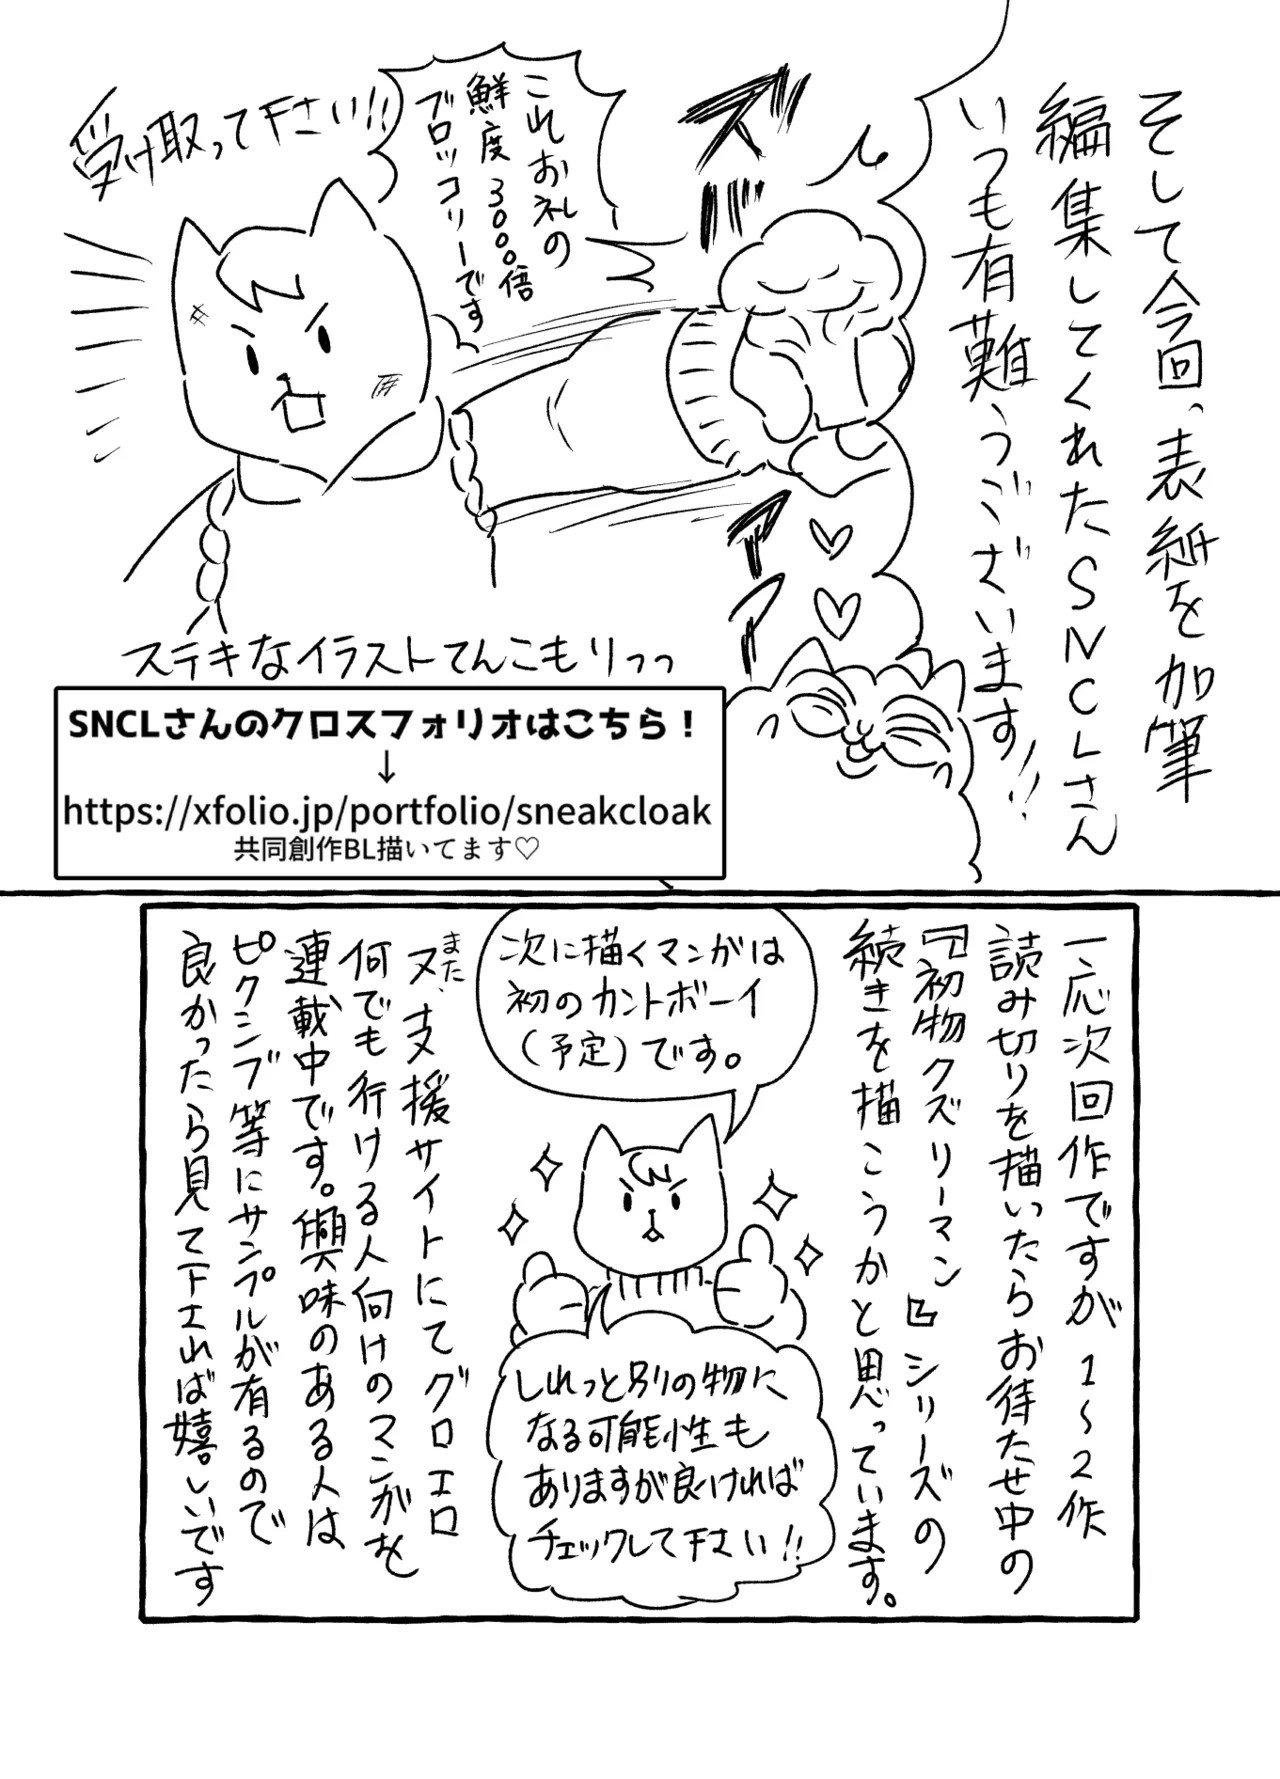 そして今回、表紙を加筆
編集してくれたSNCLさん
いつも有難うございます!!
ズバ
これお礼の
鮮度3000倍
ブロッコリーです
受け取って下さい!!
アア
ステキなイラストてんこもりっっ
SNCLさんのクロスフォリオはこちら！
↓
https://xfolio.jp/portfolio/sneakcloak
共同創作BL描いてます♡
一応次回作ですが1~2作
読み切りを描いたらお待たせ中の
『初物クズリーマン』シリーズの
続きを描こうかと思っています。
次に描くマンガは
初のカントボーイ
(予定)です。
しれっと別の物に
なる可能性も
ありますが良ければ
チェックして下さい!!
また
又、支援サイトにてグロエロ
何でも行ける人向けのマンガを
連載中です。興味のある人は
ピクシブ等にサンプルが有るので
良かったら見て下されば嬉しいです